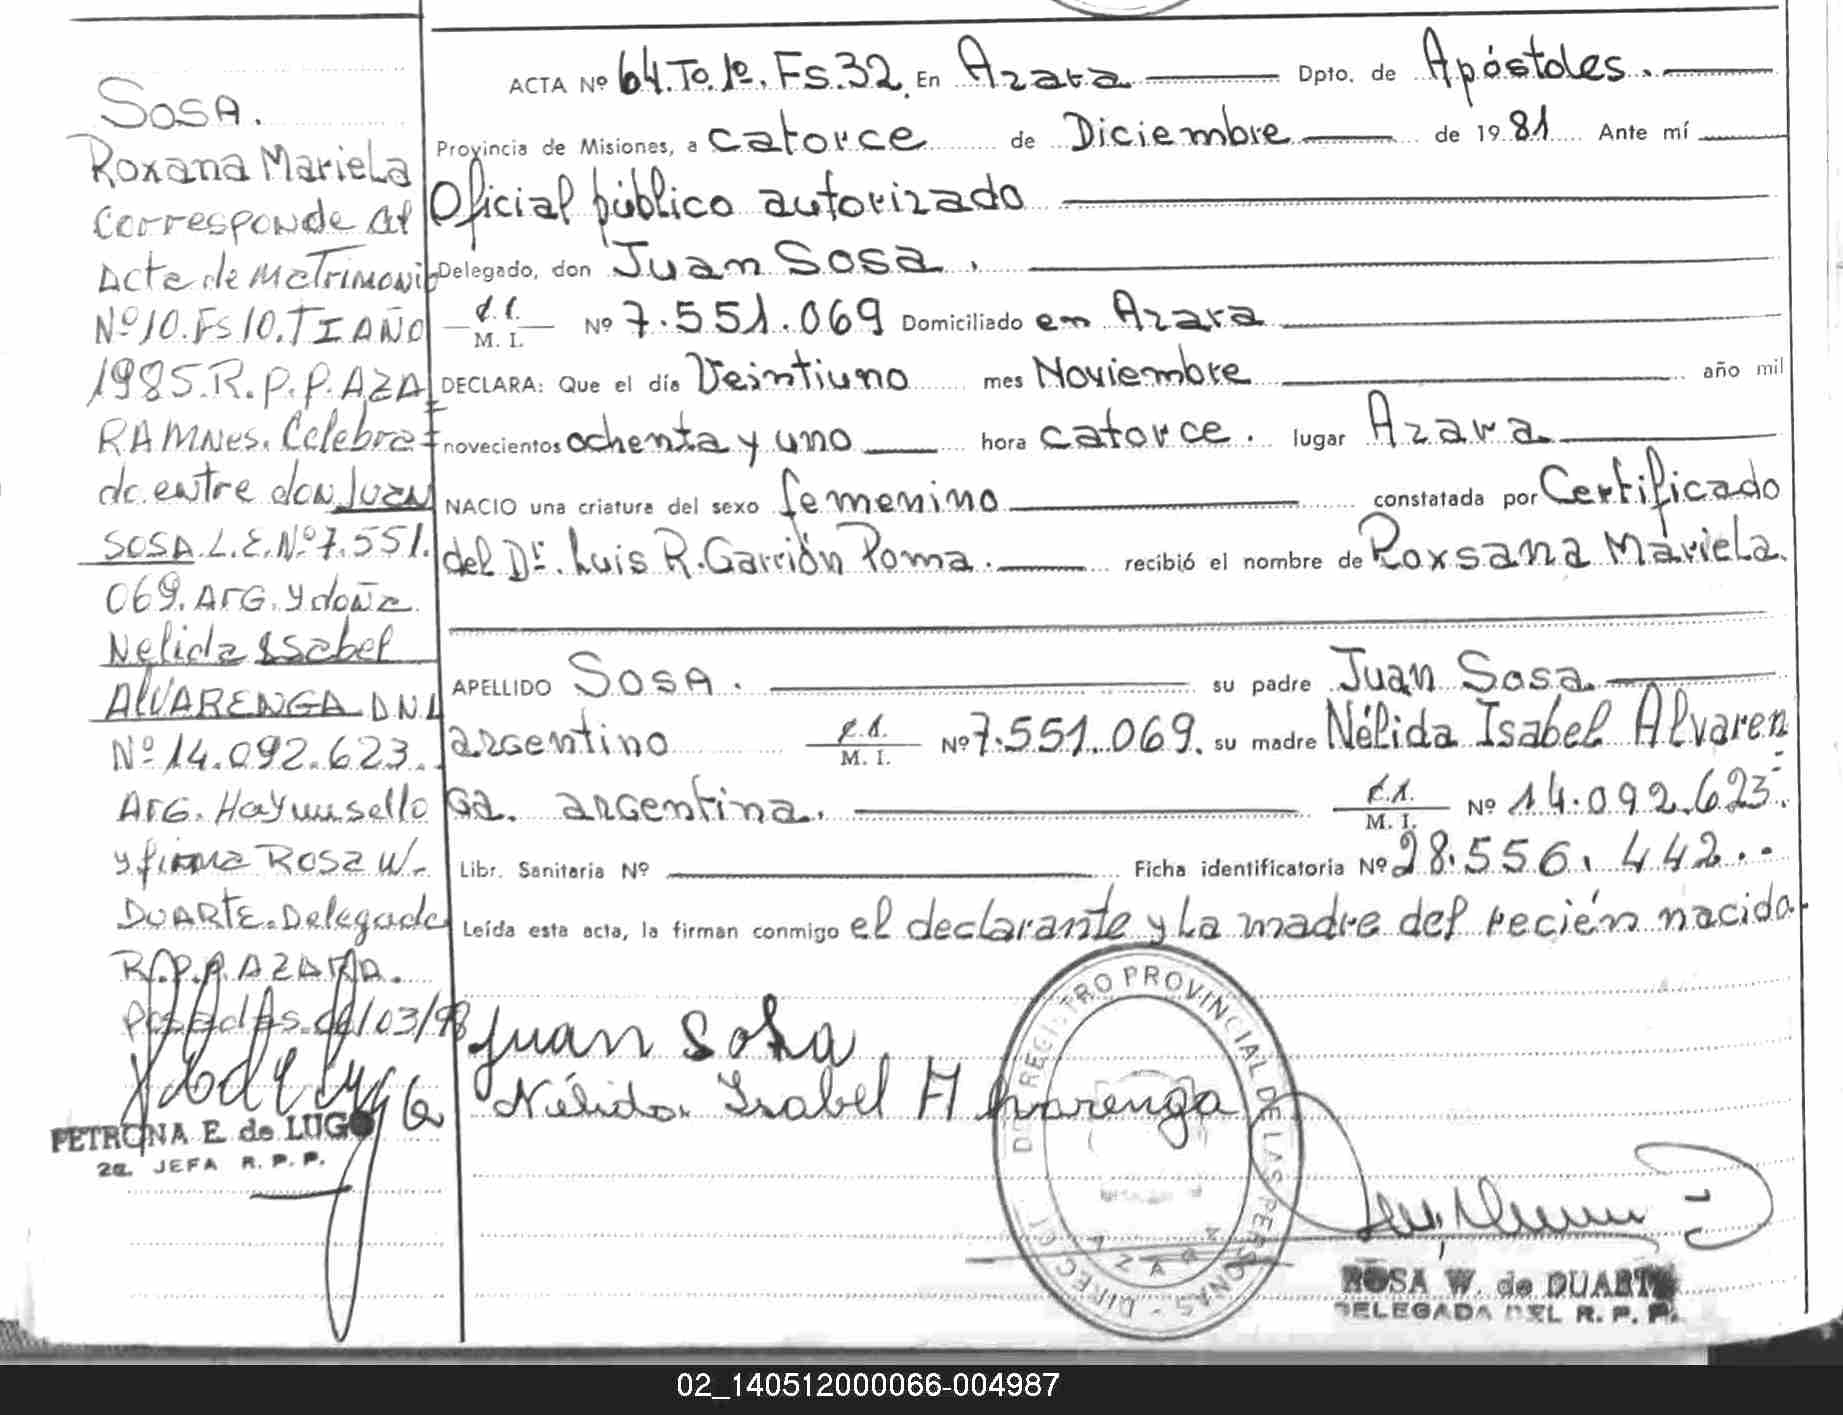 SOSA.
Roxana Mariela
Corresponde al
Acta de Matrimonio
Nº10.Fs10.TI AÑO
1985.R.P.P.AZA=
RAMNes. Celebra=
do entre don Juan
SOSA L.E.Nº7.551.
069. Arg. y doña
Nelida Isabel
ALVARENGA D.N.I
Nº 14.092.623.
Arg. Hay un sello
y firma Rosa W.
DUARTE. Delegada
R.P.P. AZARA.
Posadas. /03/98
PETRONA E. de LUGO
2a. JEFA R. P. P.
ACTA Nº 64.To.1º.Fs.32. En Azara Dpto. de Apóstoles.
Provincia de Misiones, a catorce de Diciembre de 1981 Ante mí
Oficial público autorizado
Delegado, don Juan Sosa.
M. I. Nº 7.551.069 Domiciliado en Azara
DECLARA: Que el día Veintiuno mes Noviembre año mil
novecientos ochenta y uno hora catorce. lugar Azara
NACIO una criatura del sexo femenino constatada por Certificado
del Dr. Luis R. Garrión Poma. recibió el nombre de Roxsana Mariela.
APELLIDO SOSA. su padre Juan Sosa.
argentino M. I. Nº 7.551.069. su madre Nélida Isabel Alvaren
ga. argentina. M. I. Nº 14.092.623.
Libr. Sanitaria Nº Ficha identificatoria Nº 28.556.442..
Leída esta acta, la firman conmigo el declarante y la madre del recién nacido.
Juan Sosa
Nélida Isabel Alvarenga
DIRECCION DE REGISTRO PROVINCIAL DE LAS PERSONAS
AZARA
ROSA W. de DUARTE
DELEGADA DEL R. P. P.
02_140512000066-004987